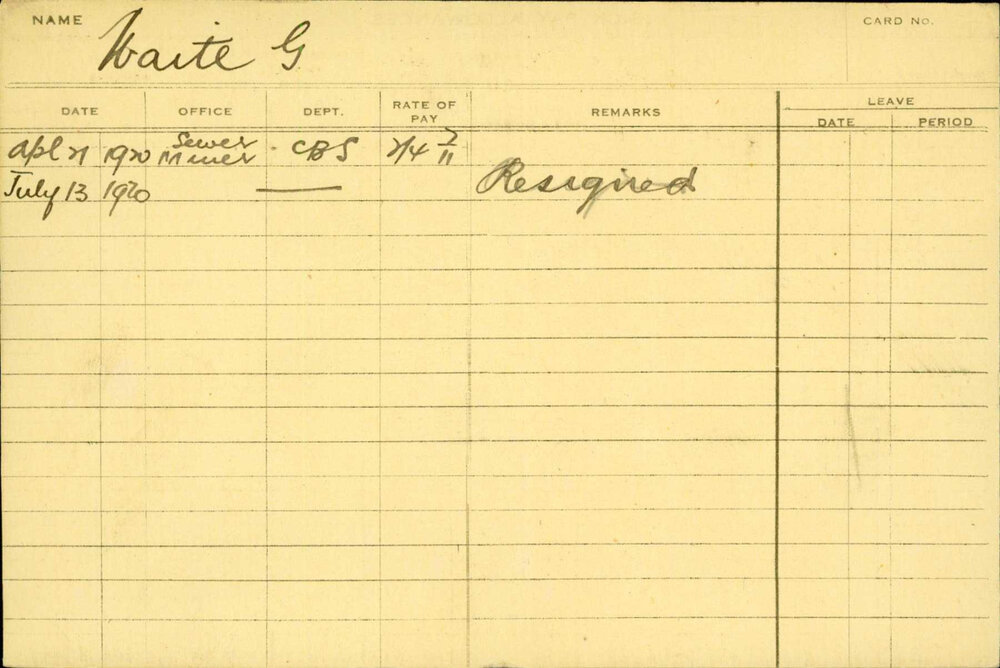 NAME
Waite G
CARD No.
DATE OFFICE DEPT. RATE OF PAY REMARKS LEAVE
DATE PERIOD
Apl 21 1920 Sewer Miner CBS 2/4 7/11
July 13 1920 — Resigned